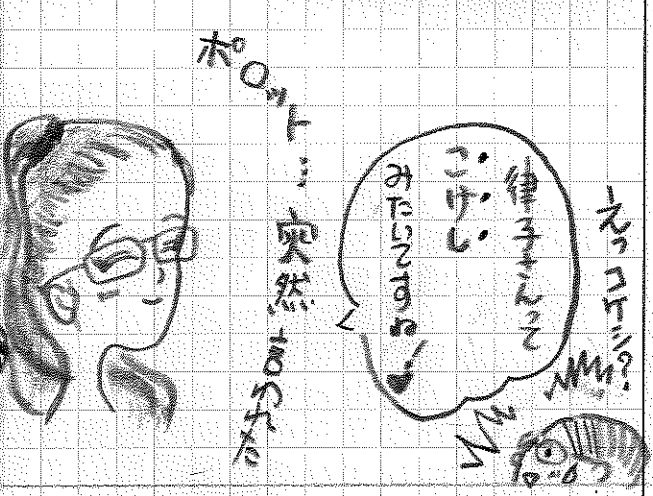 えっコケシ?
律子さんって
こけし
みたいですね♥
ポロット…
突然